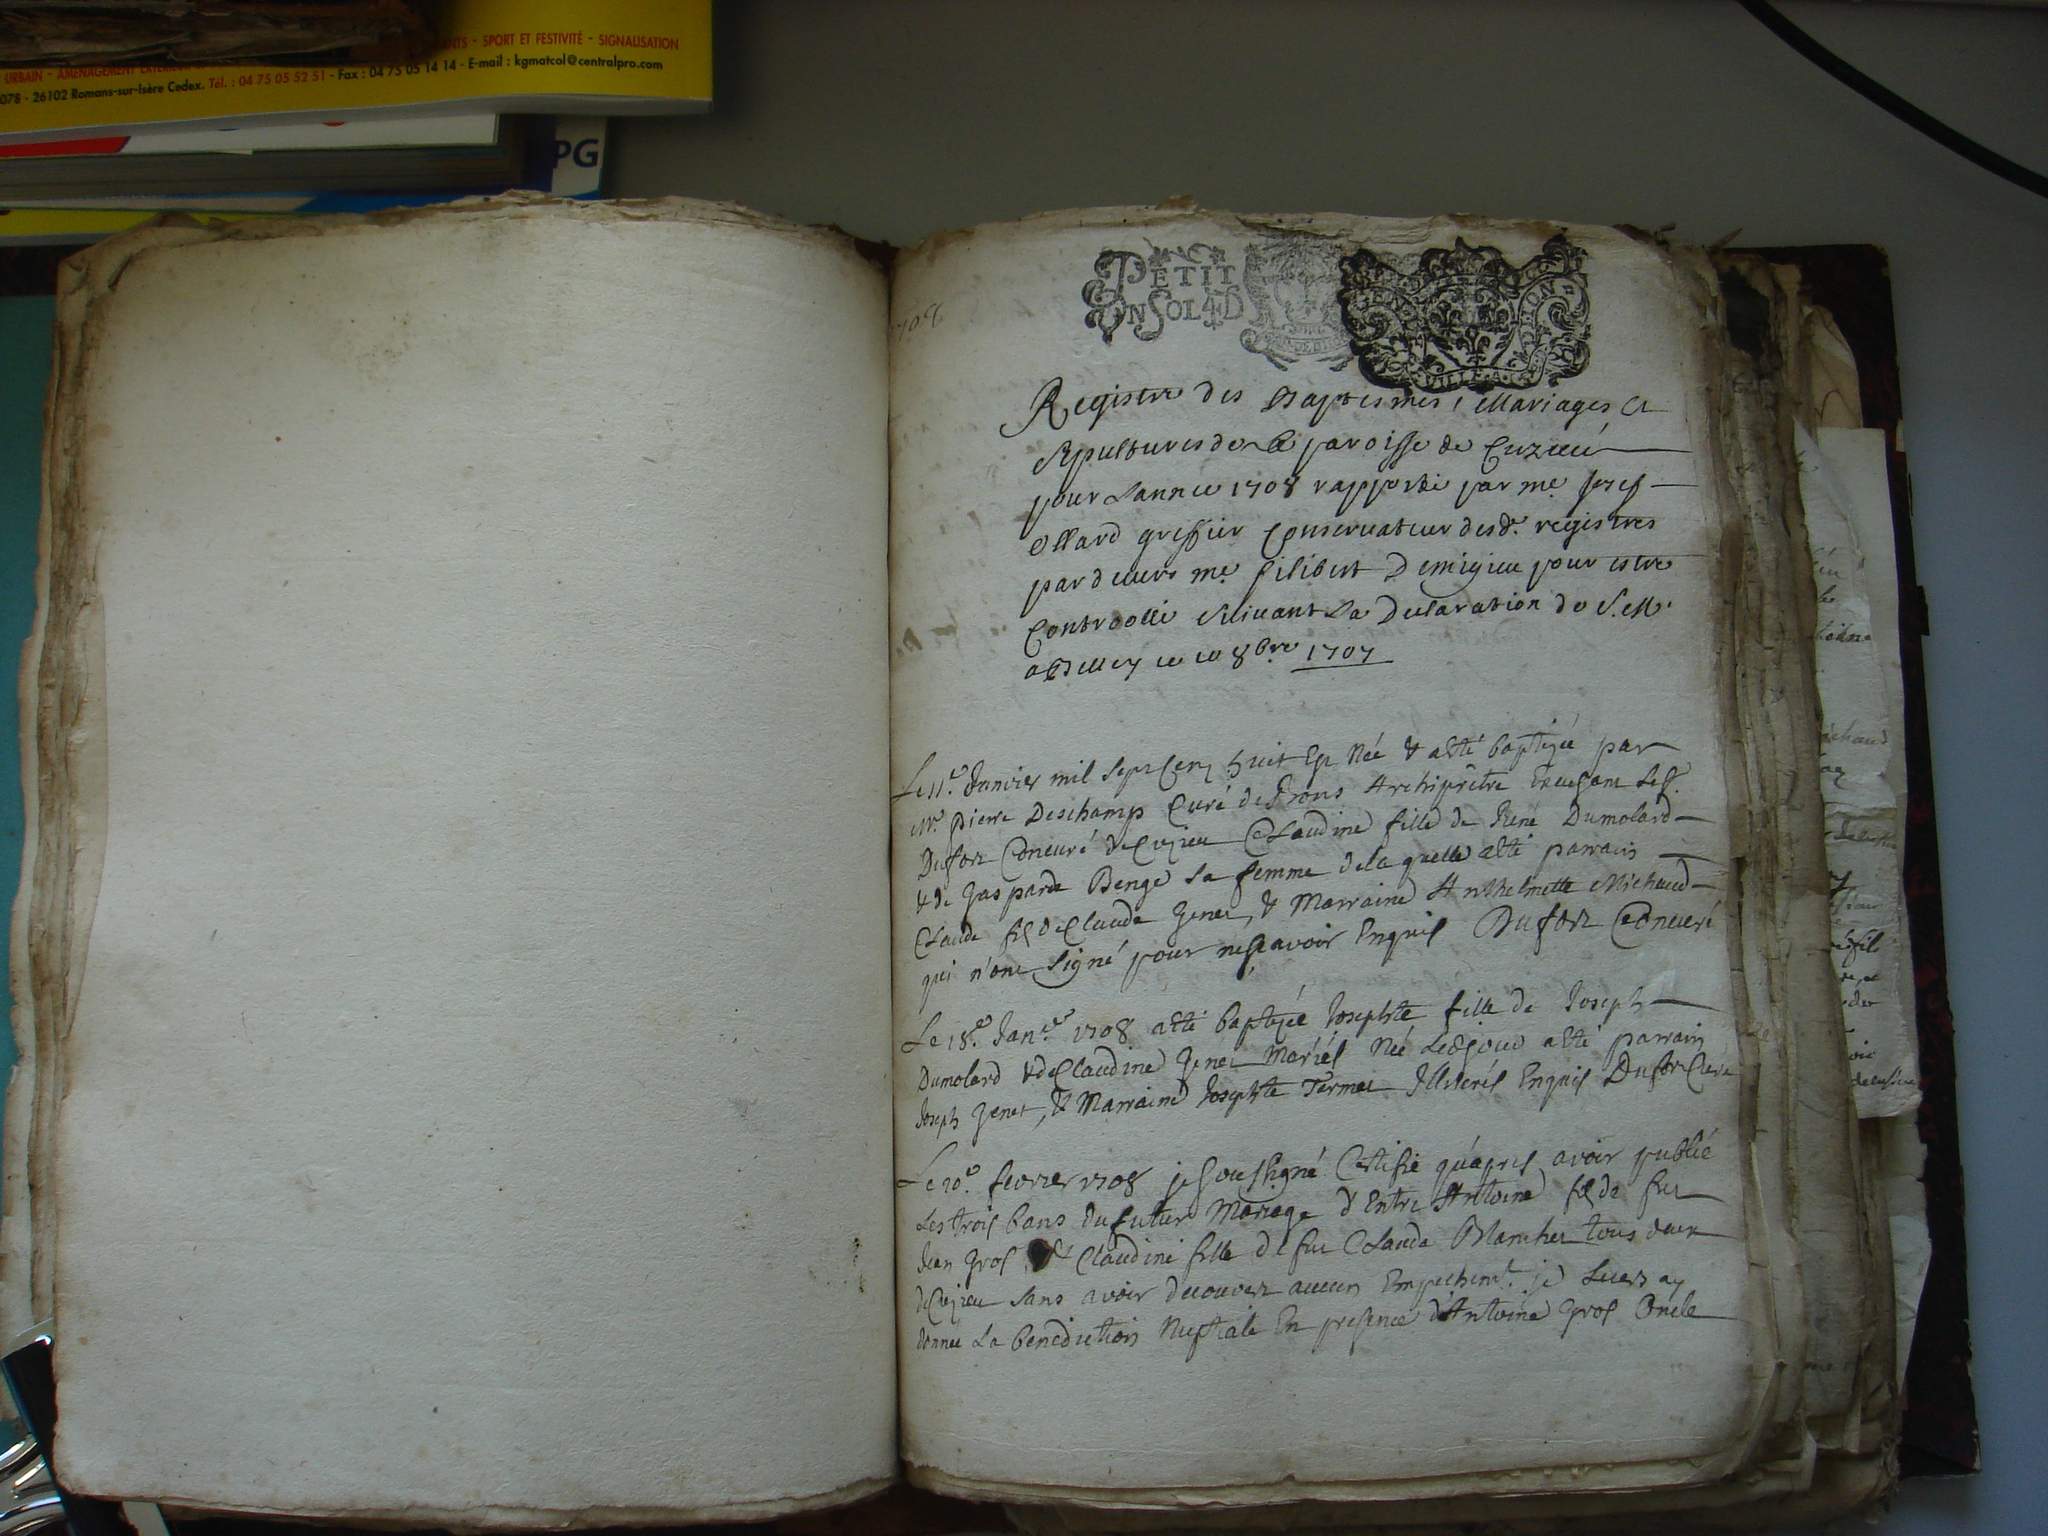 ANTS - SPORT ET FESTIVITÉ - SIGNALISATION
URBAIN - AMÉNAGEMENT EXTÉRIEUR
078 - 26102 Romans-sur-Isère Cedex. Tél. : 04 75 05 52 51 - Fax : 04 75 05 14 14 - E-mail : kgmatcol@centralpro.com
PG
1708
PETIT
UN SOL 4 D
Registre des Baptesmes, Mariages Et
Sepultures de la paroisse de Cuzieu
pour Lannee 1708 rapporté par me Josef
Ollard greffier Conservateur desd. registres
pardevers me filibert Demigieu pour estre
Controollé suivant La Declaration de S. M.
a Belley ce 8bre 1707
Le 11e Janvier mil Sept Cent huit Est Née & a esté baptizée par
Mr. pierre Deschamp Curé de Archiprêtre
Dufort Concuré de Cuzieu Claudine fille de René Dumolard
& de Gasparde Benge sa femme de la quelle a esté parrain
Claude fils de Claude Genet, & Marraine Anthelmette Michaud
qui n'ont Signé pour ne scavoir Enquis Dufort Concuré
Le 18e Janer 1708 a esté baptizée Josephte fille de Joseph
Dumolard & de Claudine Genet Mariés Née Led jour a esté parrain
Joseph Genet, & Marraine Josephte Termet Illiterés Enquis Dufort Curé
Le 20e fevrier 1708 je Soussigné Certifie qu'après avoir publié
Les trois bans du futur Mariage d'Entre Antoine fils de feu
Jean Gros & Claudine fille de feu Claude Blanchet tous deux
de Cuzieu sans avoir decouvert aucun Empechemt. je Leurs ay
donnee La benediction Nuptiale En presence d'Antoine Gros Oncle